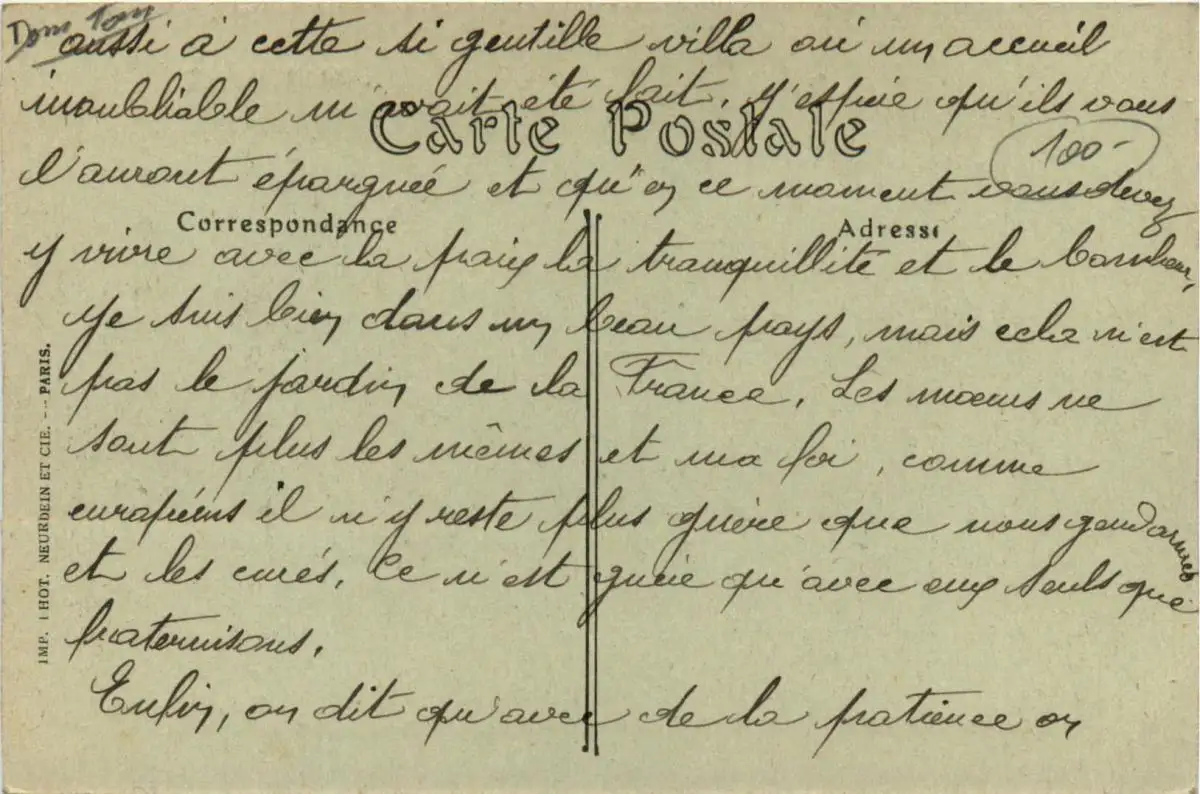 Dom Tom
aussi à cette si gentille villa où un accueil
inoubliable m'avait été fait. J'espère qu'ils vous
Carte Postale
100-
l'auront épargnée et qu'en ce moment vous devez
Correspondance
Adresse
y vivre avec la paix la tranquillité et le bonheur,
Je suis bien dans un beau pays, mais cela n'est
pas le jardin de la France. Les moeurs ne
sont plus les mêmes et ma foi, comme
européens il n'y reste plus guère que nous gendarmes
et les curés. Ce n'est guère qu'avec eux seuls que
fraternisons.
Enfin, on dit qu'avec de la patience on
IMP. PHOT. NEURDEIN ET CIE. -- PARIS.